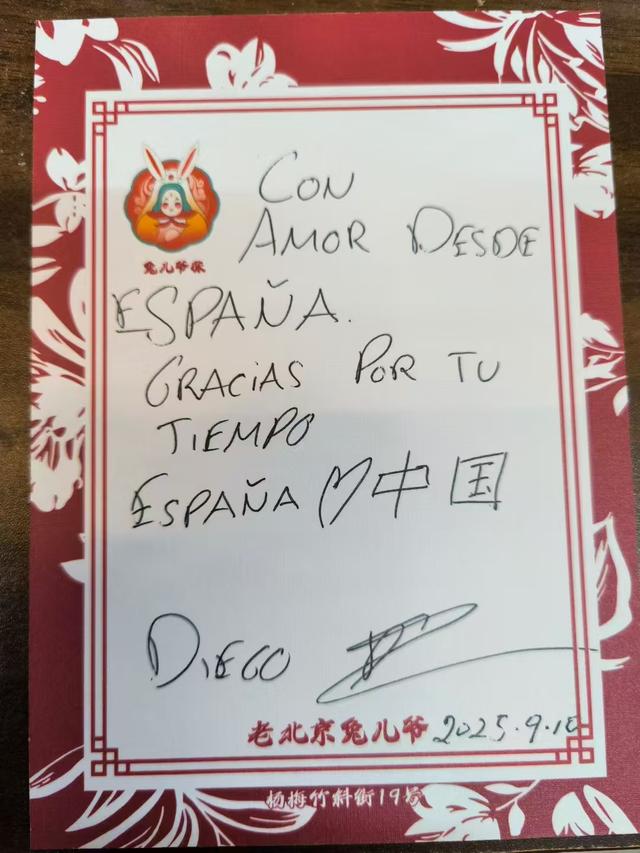 CON
AMOR DESDE
ESPAÑA.
GRACIAS POR TU
TIEMPO
ESPAÑA ♡ 中国
DIEGO
老北京兔儿爷 2025.9.10
杨梅竹斜街19号